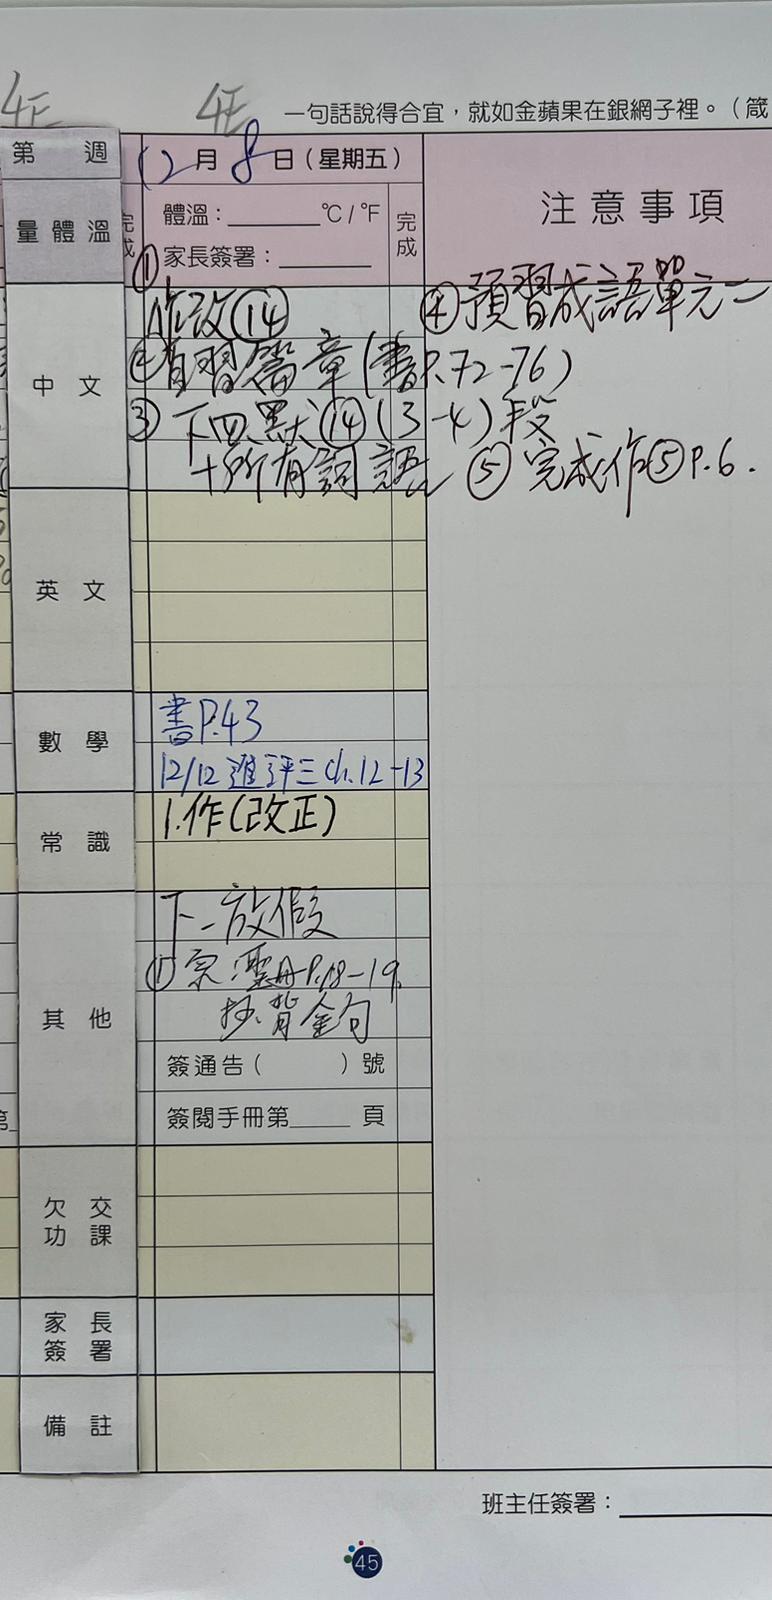 4E 4E
一句話說得合宜，就如金蘋果在銀網子裡。（箴
第 週
12月8日（星期五）
注意事項
量體溫
完成
體溫：______℃/℉
完成
家長簽署：______
中文
① 作改⑭
② 自習篇章(書P.72-76)
③ 下四默⑭(3-4)段
+所有詞語
④ 預習成語單元二
⑤ 完成作⑤P.6.
英文
數學
書P.43
12/12 進評三 ch.12-13
常識
1.作(改正)
其他
下一放假
① 宗:靈丹P.18-19,
抄.背金句
簽通告（ ）號
簽閱手冊第_____頁
欠交功課
家長簽署
備註
班主任簽署：
45